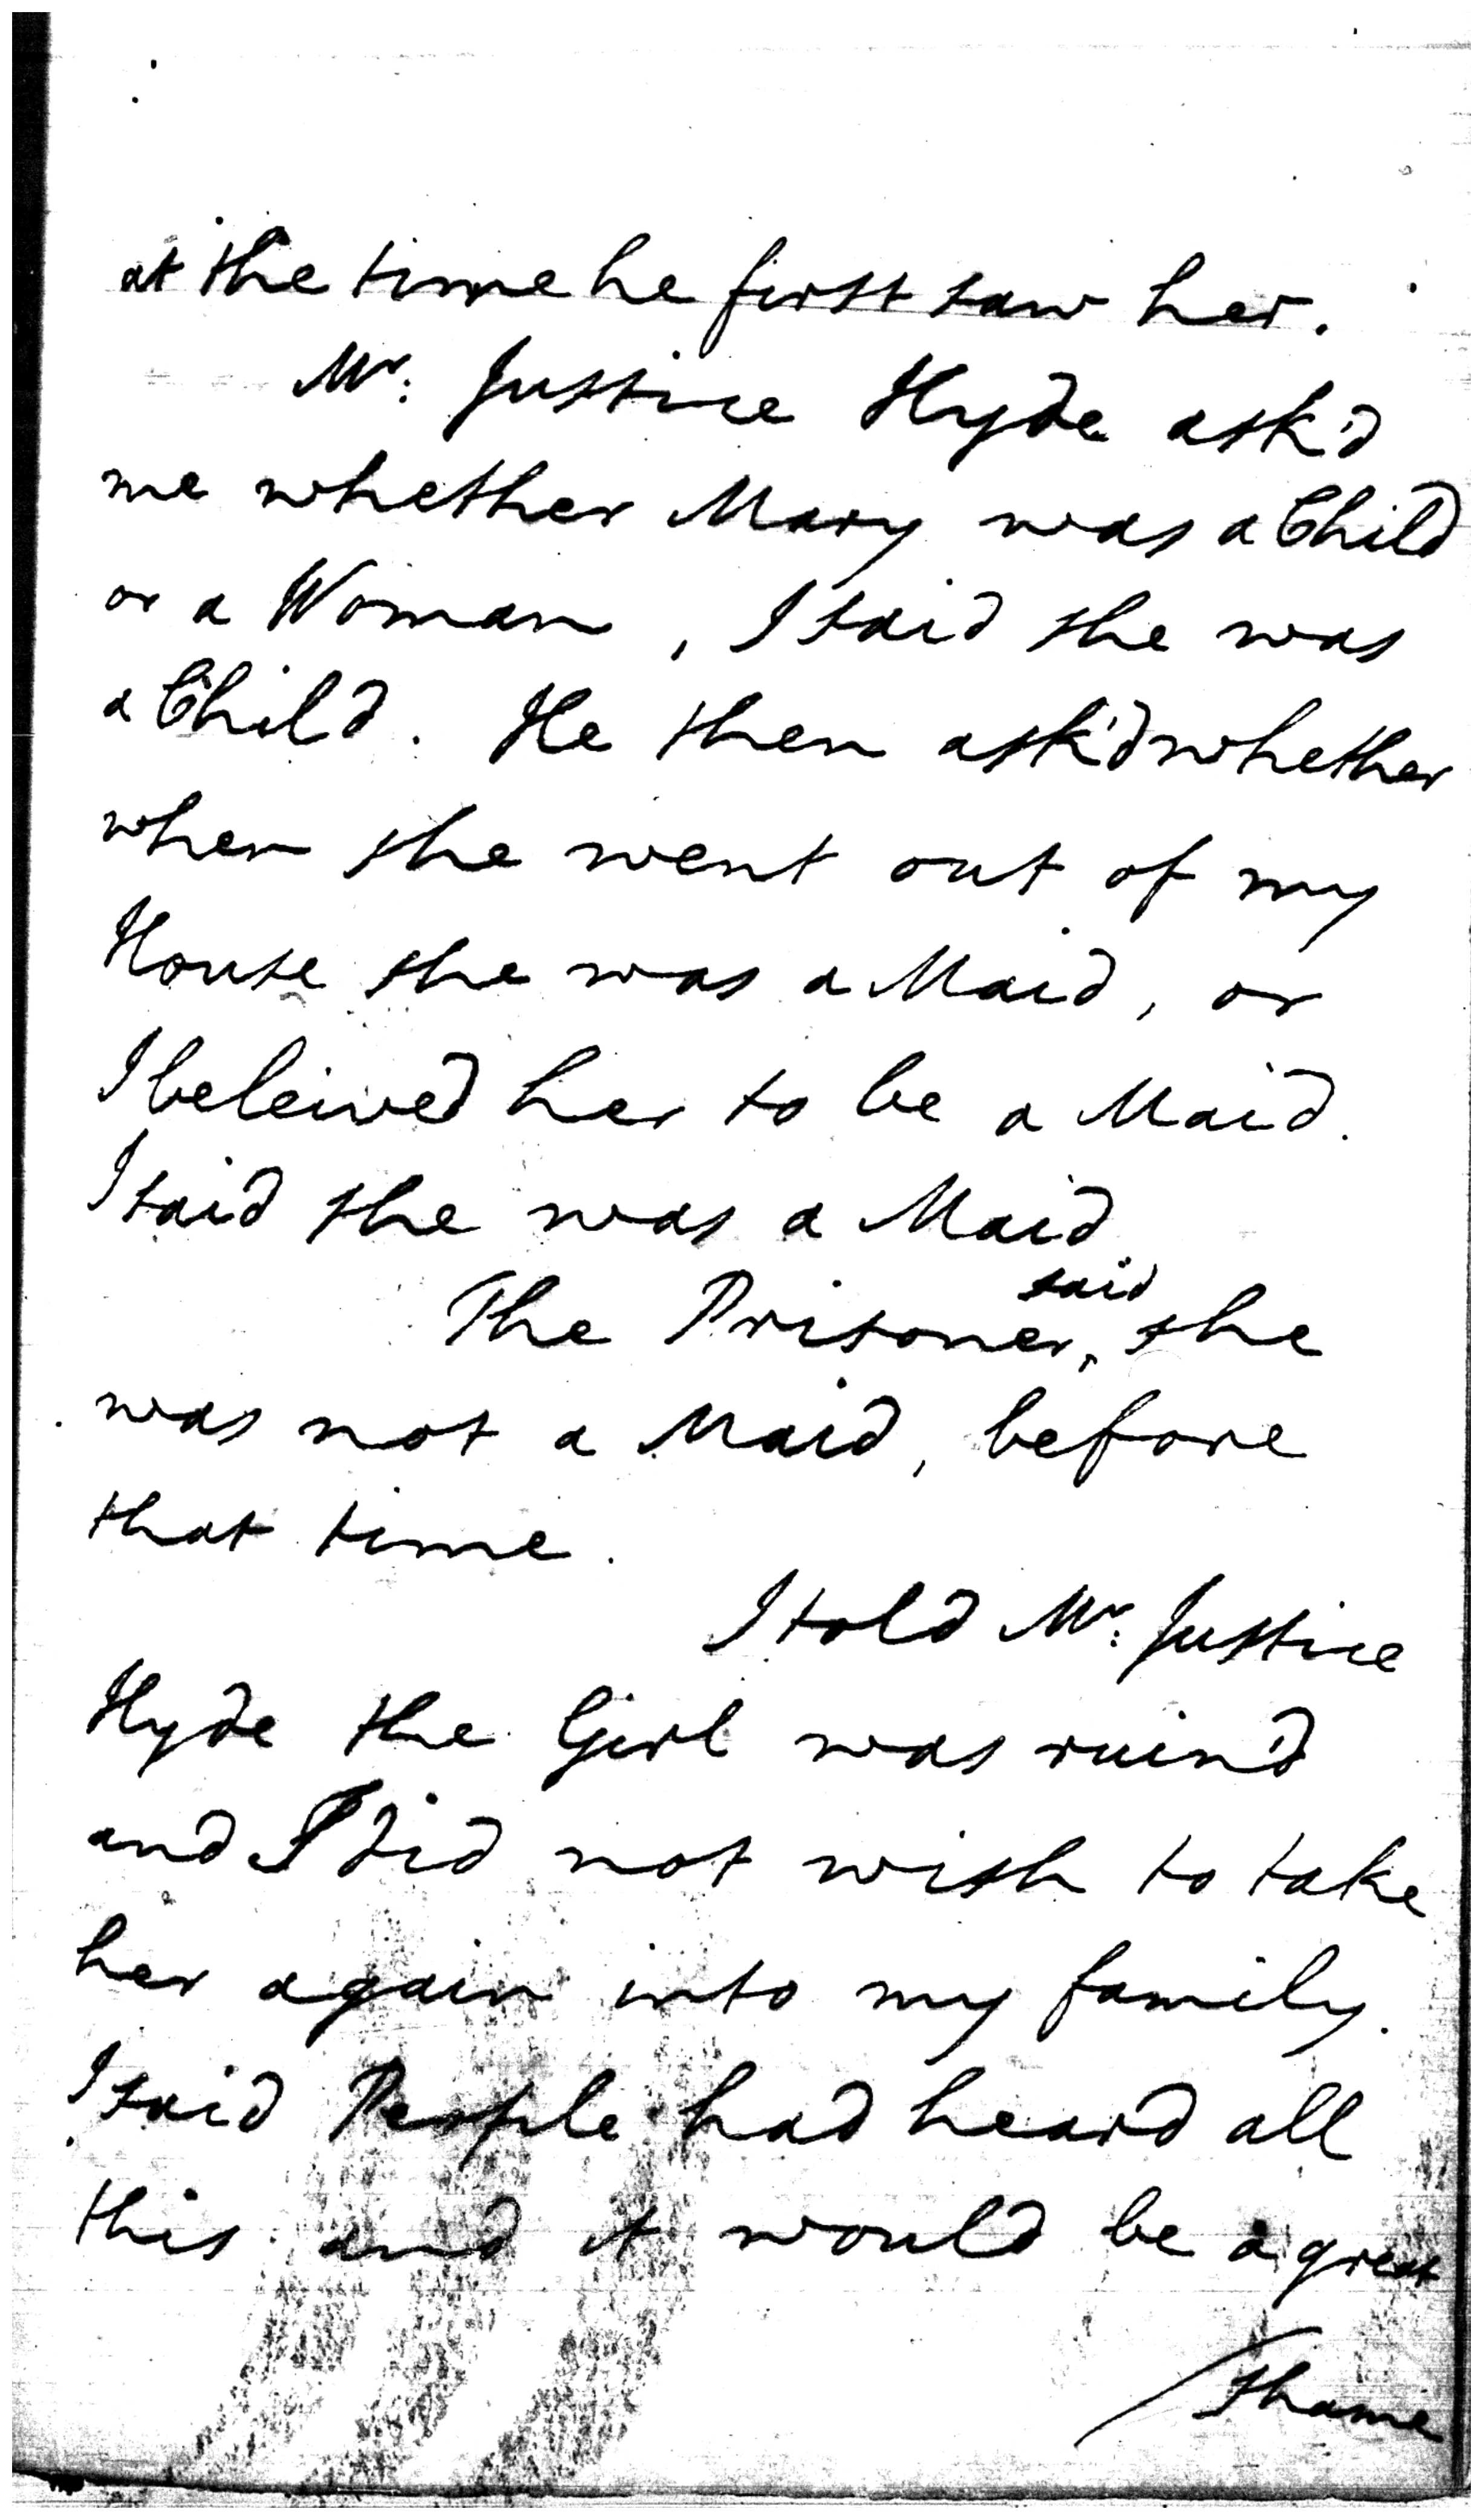 at the time he first saw her.
Mr: Justice Hyde ask'd
me whether Mary was a Child
or a Woman, I said she was
a Child. He then ask'd whether
when she went out of my
House she was a Maid, or
I beleived her to be a Maid.
I said she was a Maid.
said
The Prisoner, she
was not a Maid, before
that time.
I told Mr: Justice
Hyde the Girl was ruin'd
and I did not wish to take
her again into my family.
I said People had heard all
this and it would be a great
/shame